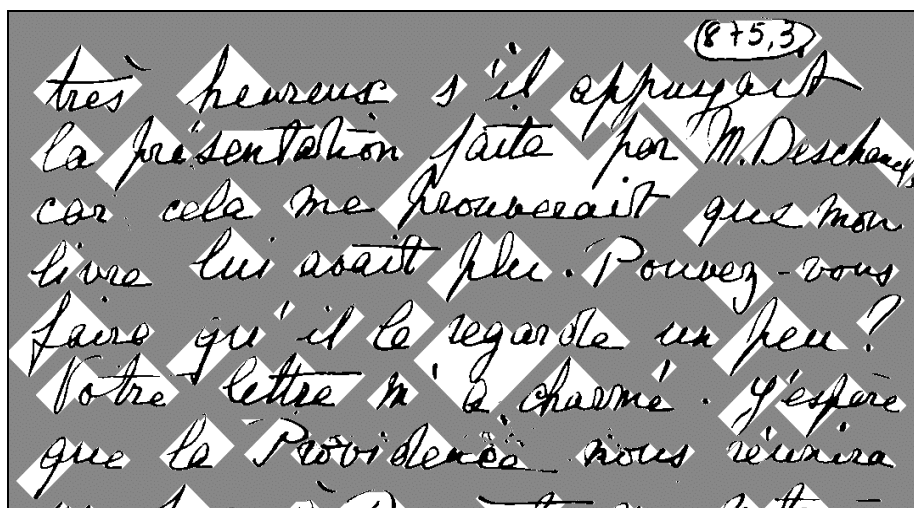 875,3
très heureux s'il appuyait
la présentation faite par M. Deschanel,
car cela me prouverait que mon
livre lui avait plu. Pouvez-vous
faire qu'il le regarde un peu?
Votre lettre m'a charmé. J'espère
que la Providence nous réunira